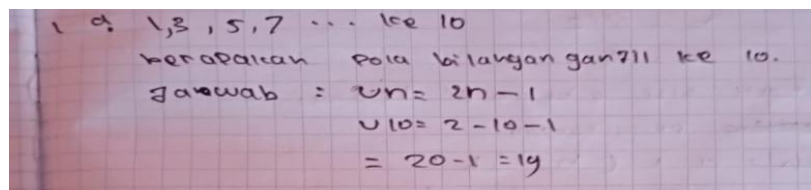 1 a. 1,3, 5,7 ... ke 10
berapakah pola bilangan ganjil ke 10.
Jawab : Un = 2n - 1
U10 = 2 - 10 - 1
= 20 - 1 = 19